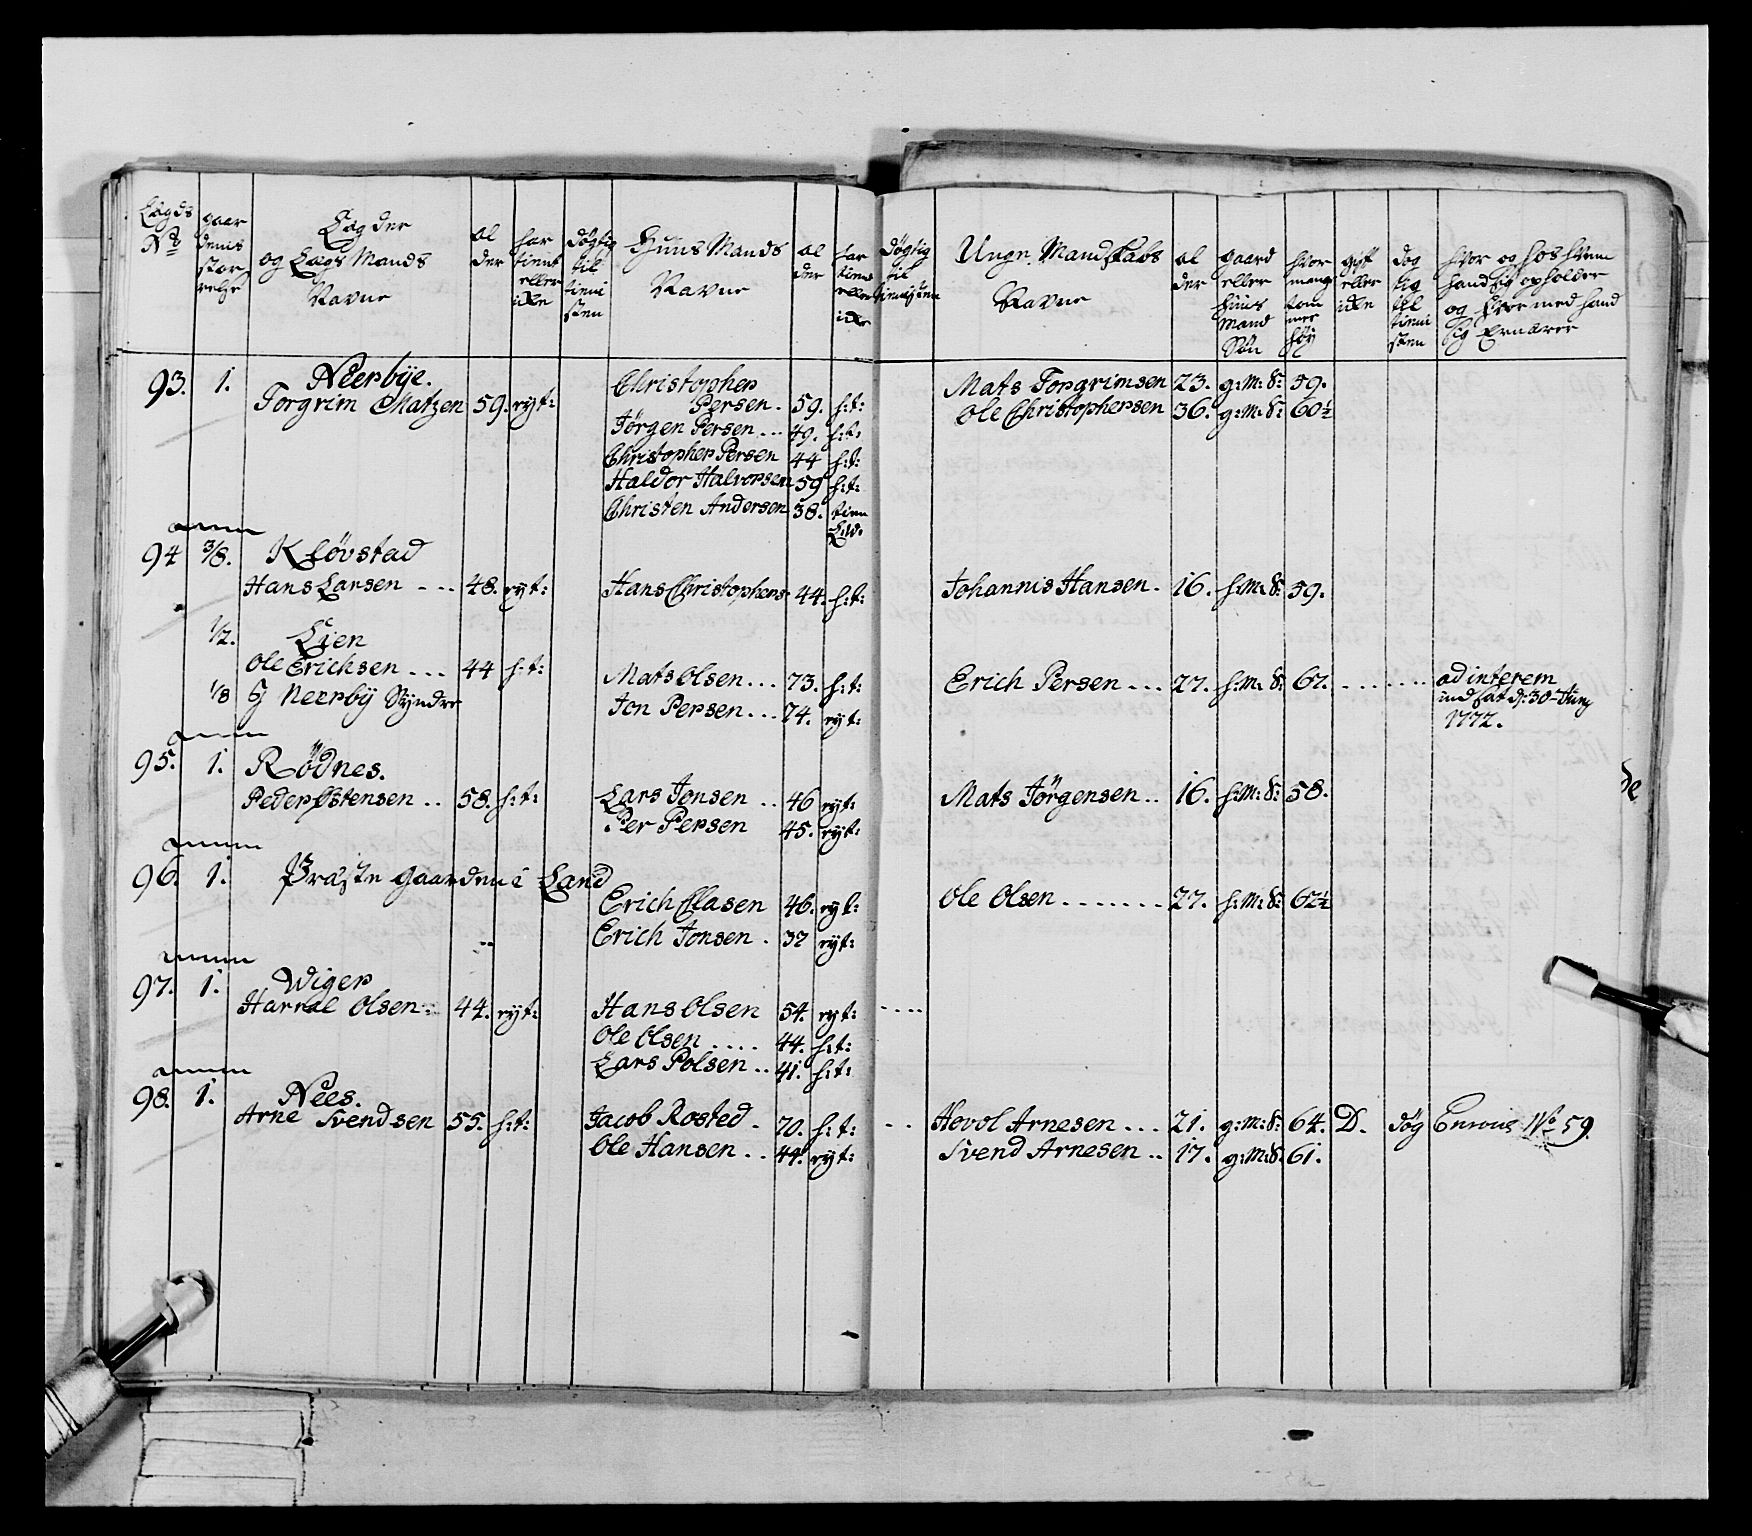 Lægds No gaar denis stør relse Læg der og Lægs Mands Navne al der har tient eller ikke døgtig til tieni sten Huus Mands Navne al der har tient eller ikke Døgtig til tienisten Ungn. Mandskabs Navne al der gaard eller huus Mand Søn hvor mang tom mer høy gift eller ikke døg tig til tieni sten hvor og hos hvem hand sig opholder og hvor med hand sig Ernærer
93. 1. Neerbÿe. Christopher Mats Torgrimsen 23. g:M:S: 59.
Torgrim Matzen 59. rÿt: Persen. 59. h:t: Ole Christophersen 36. g:M:S: 60½
Jørgen Persen... 49. h:t:
Christopher Persen 44 h:t:
Haldor Halvorsen 59 h:t:
Christen Andersen 38. tien
94 3/8. Kløvstad
Hans Larsen ... 48. rÿt: Hans Christophers 44. h:t: Johannis Hansen. 16. h:M:S: 59.
1/2. Lien
Ole Ericksen ... 44 h:t: Mats Olsen ... 73. h:t: Erich Persen ... 27. h:M:S: 67. ad interem
1/8 Neerbÿ Syndre Jon Persen ... 74. rÿt: indsat d: 30 Junÿ
1772.
95. 1. Rødnes.
Peder Østensen .. 58. h:t: Lars Jonsen .. 46 rÿt: Mats Jörgensen .. 16. h:M:S: 58.
Per Persen 45. rÿt:
96. 1. Præste gaarden i Land
Erich Clasen 46. rÿt: Ole Olsen ....... 27. h:M:S: 62½
Erich Jonsen . 37 rÿt:
97. 1. Wiger
Harrae Olsen 44. rÿt: Hans Olsen 54. rÿt: ....
Ole Olsen .... 44. h:t:
Lars Polsen .. 41. h:t:
98. 1. Nees.
Arne Svendsen 55. h:t: Jacob Rosted . 70. h:t: .. Hovol Arnesen ... 21. g:M:S: 64. D. døg Enroul: No 59.
Ole Hansen .. 44. rÿt: Svend Arnesen .. 17. g:M:S: 61.